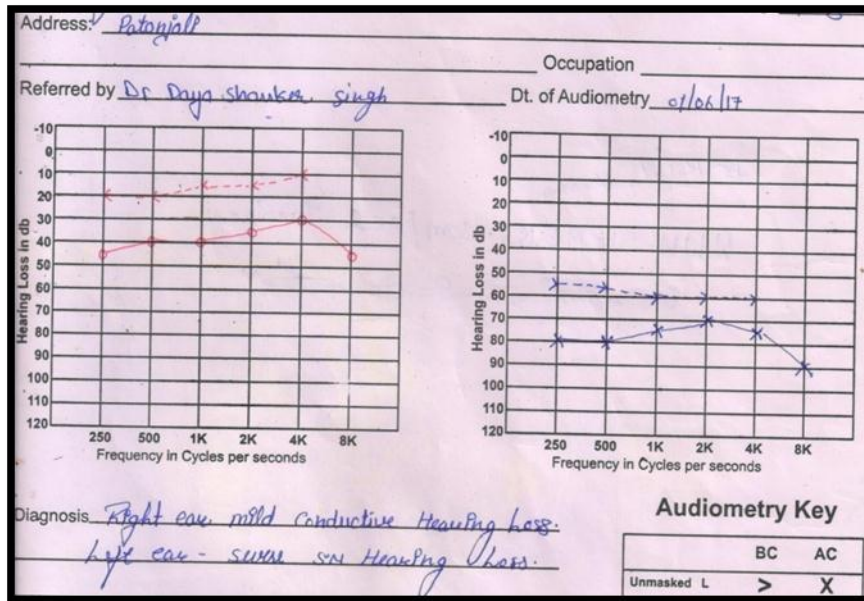 Address: Patanjali
Occupation
Referred by Dr Daya Shanker singh
Dt. of Audiometry 01/06/17
-10
0
10
20
30
40
50
60
70
80
90
100
110
120
Hearing Loss in db
250 500 1K 2K 4K 8K
Frequency in Cycles per seconds
-10
0
10
20
30
40
50
60
70
80
90
100
110
120
Hearing Loss in db
250 500 1K 2K 4K 8K
Frequency in Cycles per seconds
Diagnosis Right ear mild conductive Hearing Loss.
Left ear - severe SN Hearing Loss.
Audiometry Key
BC AC
Unmasked L > X